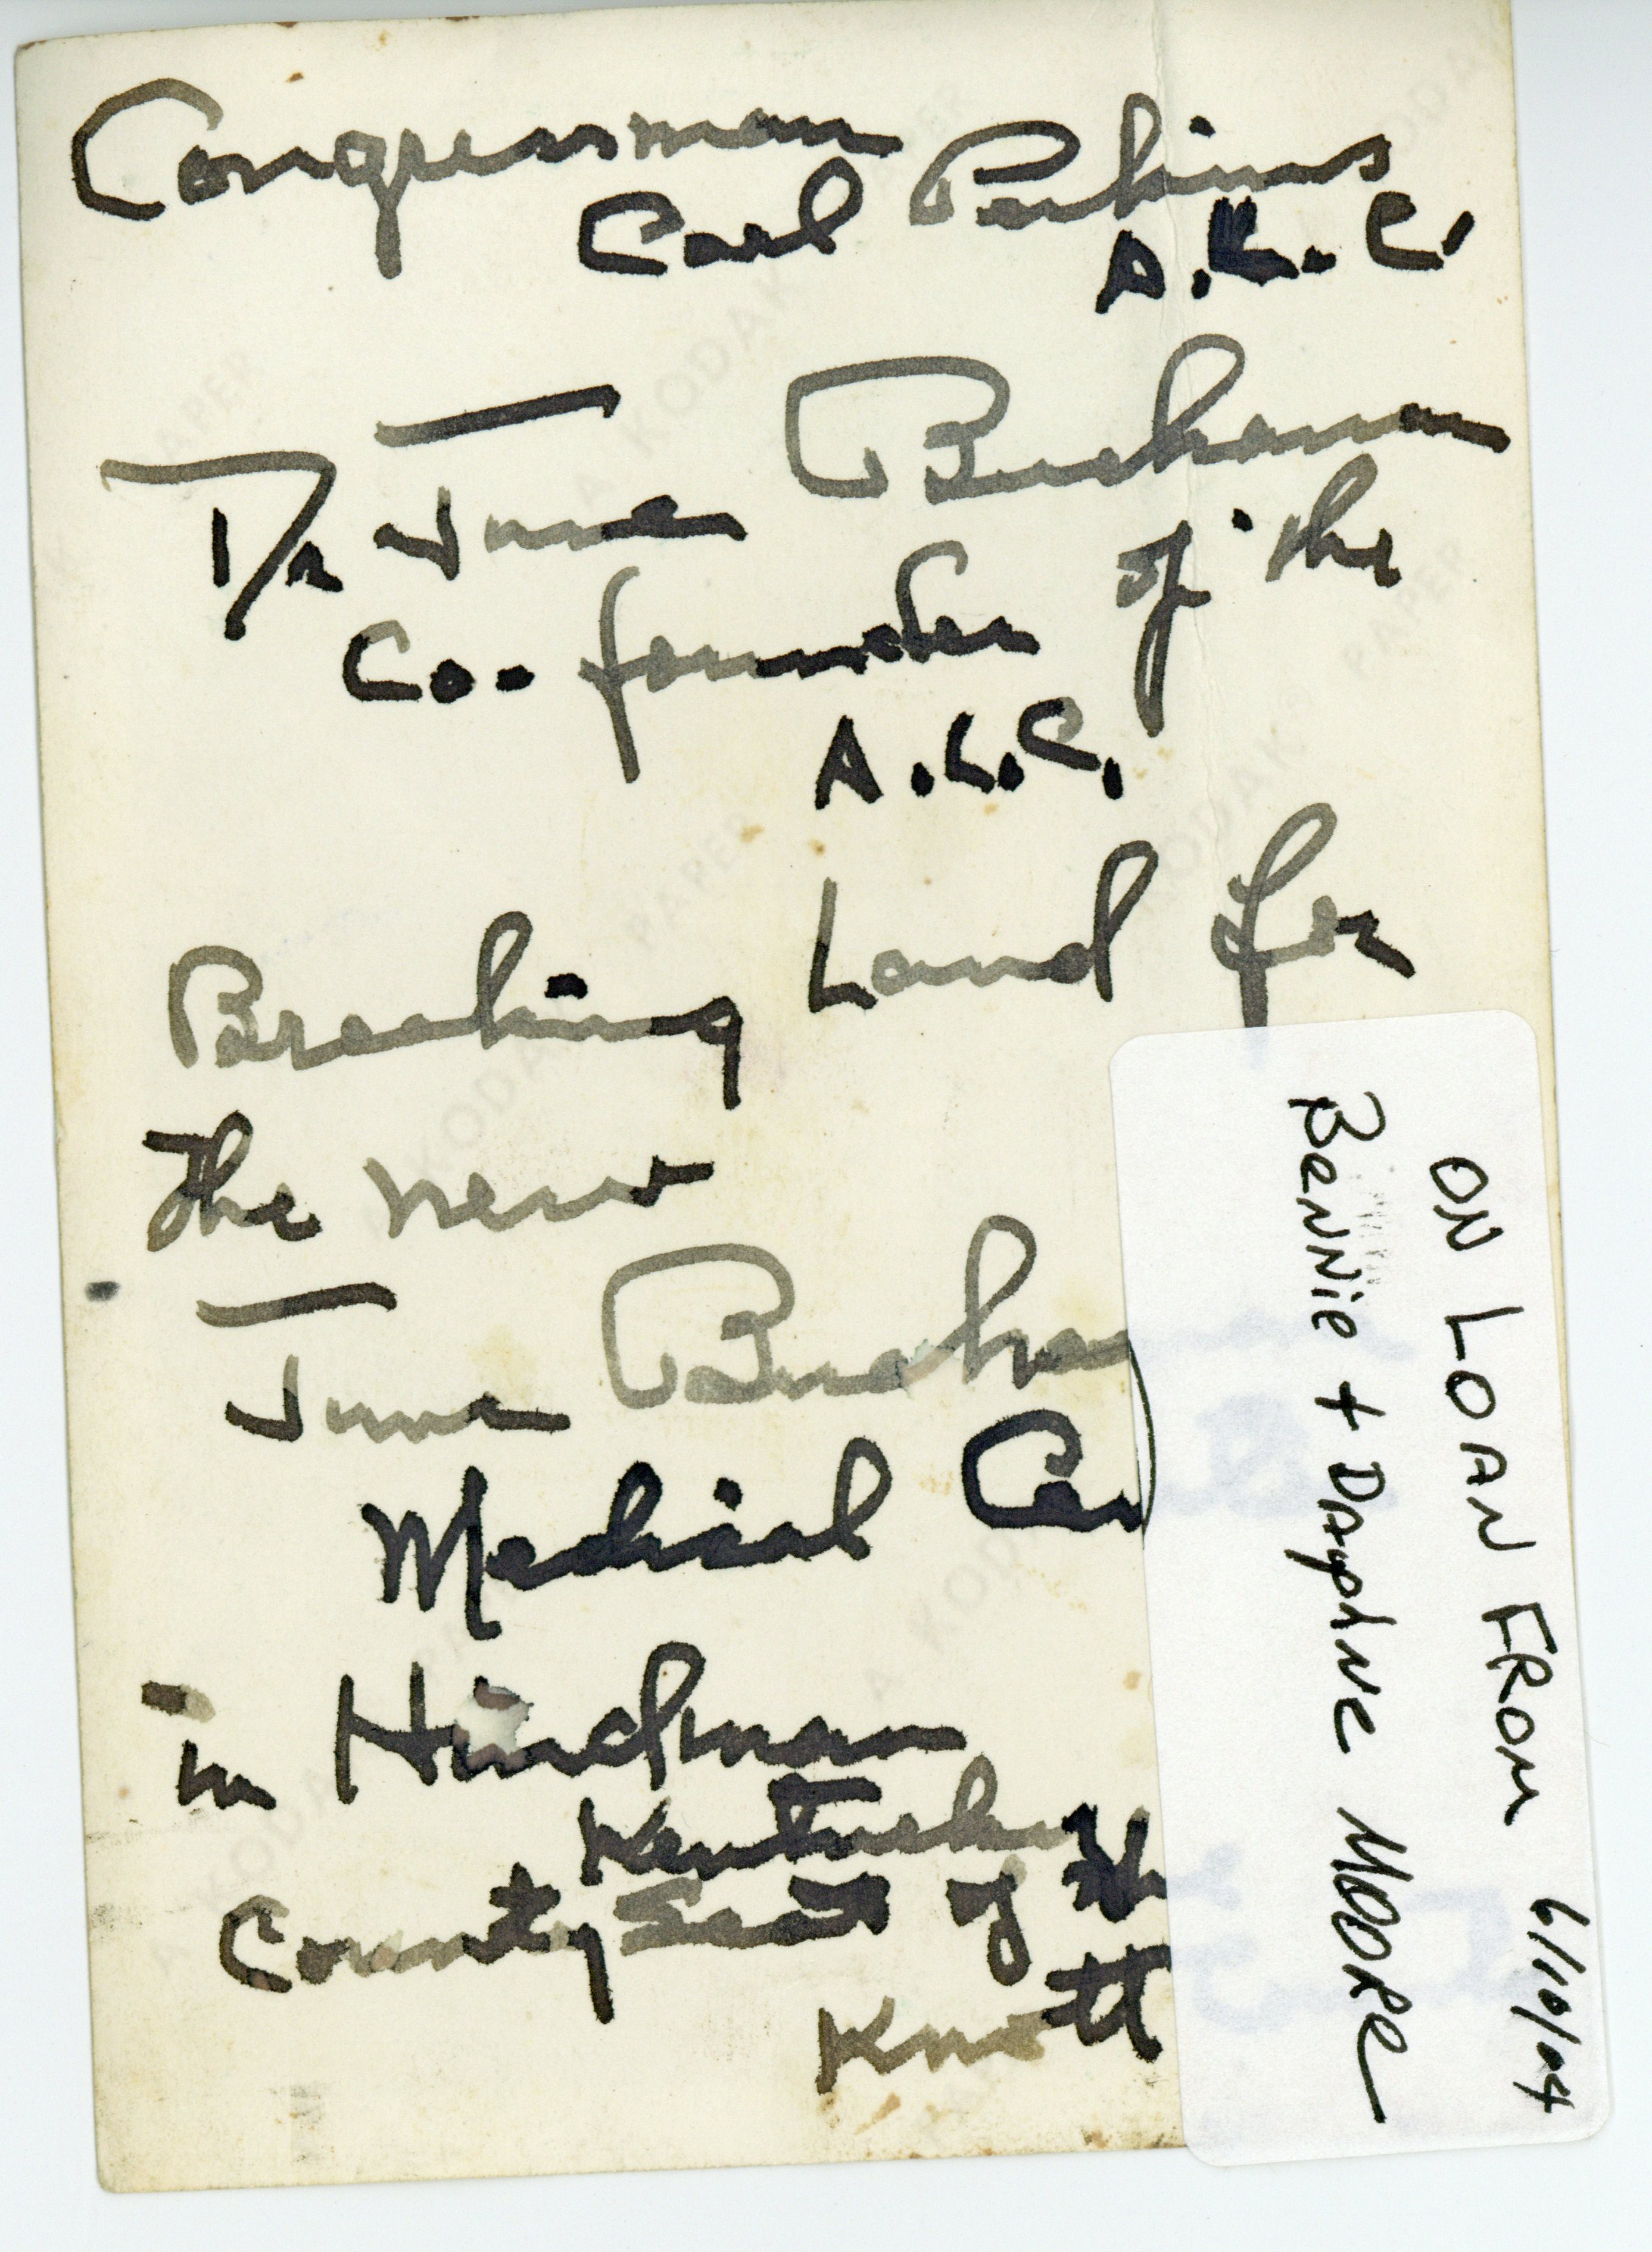 Congressman
Carl Perkins
A.L.C.
Dr June Buchanan
Co-founder of the
A.L.C.
Breaking Land for
the new
June Buchan
Medical Cen
in Hindman
Kentucky
County Seat of th
Knott
ON LOAN FROM 6/10/04
Bennie + Dayphne Moore
A KODAK PAPER